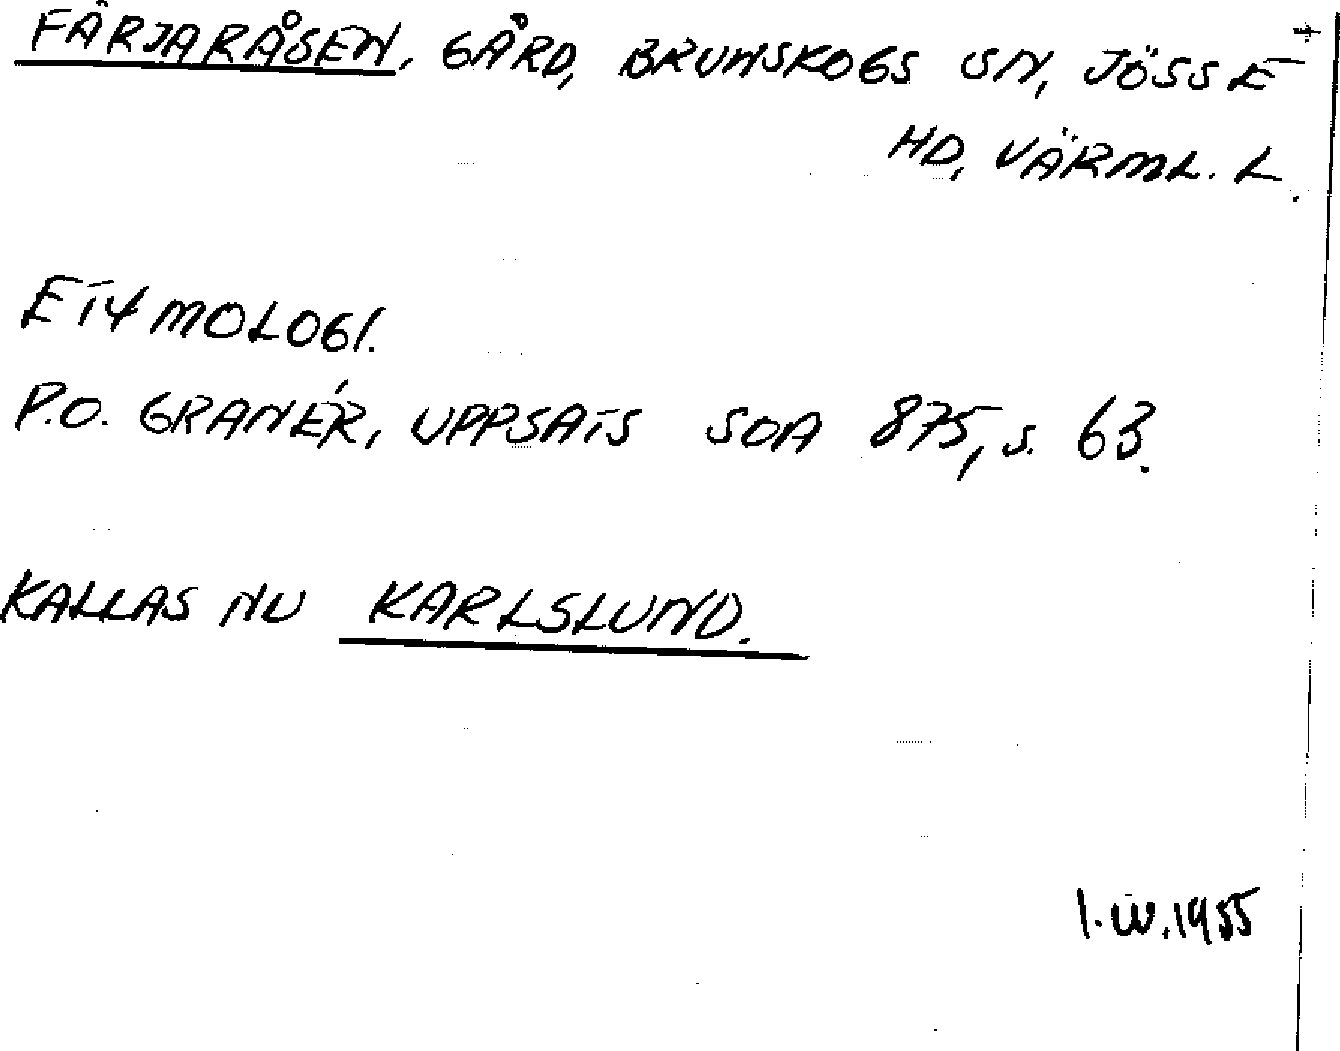 FÄRJARÅSEN, GÅRD, BRUNSKOGS SN, JÖSSE
HD, VÄRML. L.
ETYMOLOGI.
P.O. GRANÉR, UPPSATS SOA 875, S. 63.
KALLAS NU KARLSLUND.
I.W. 1955